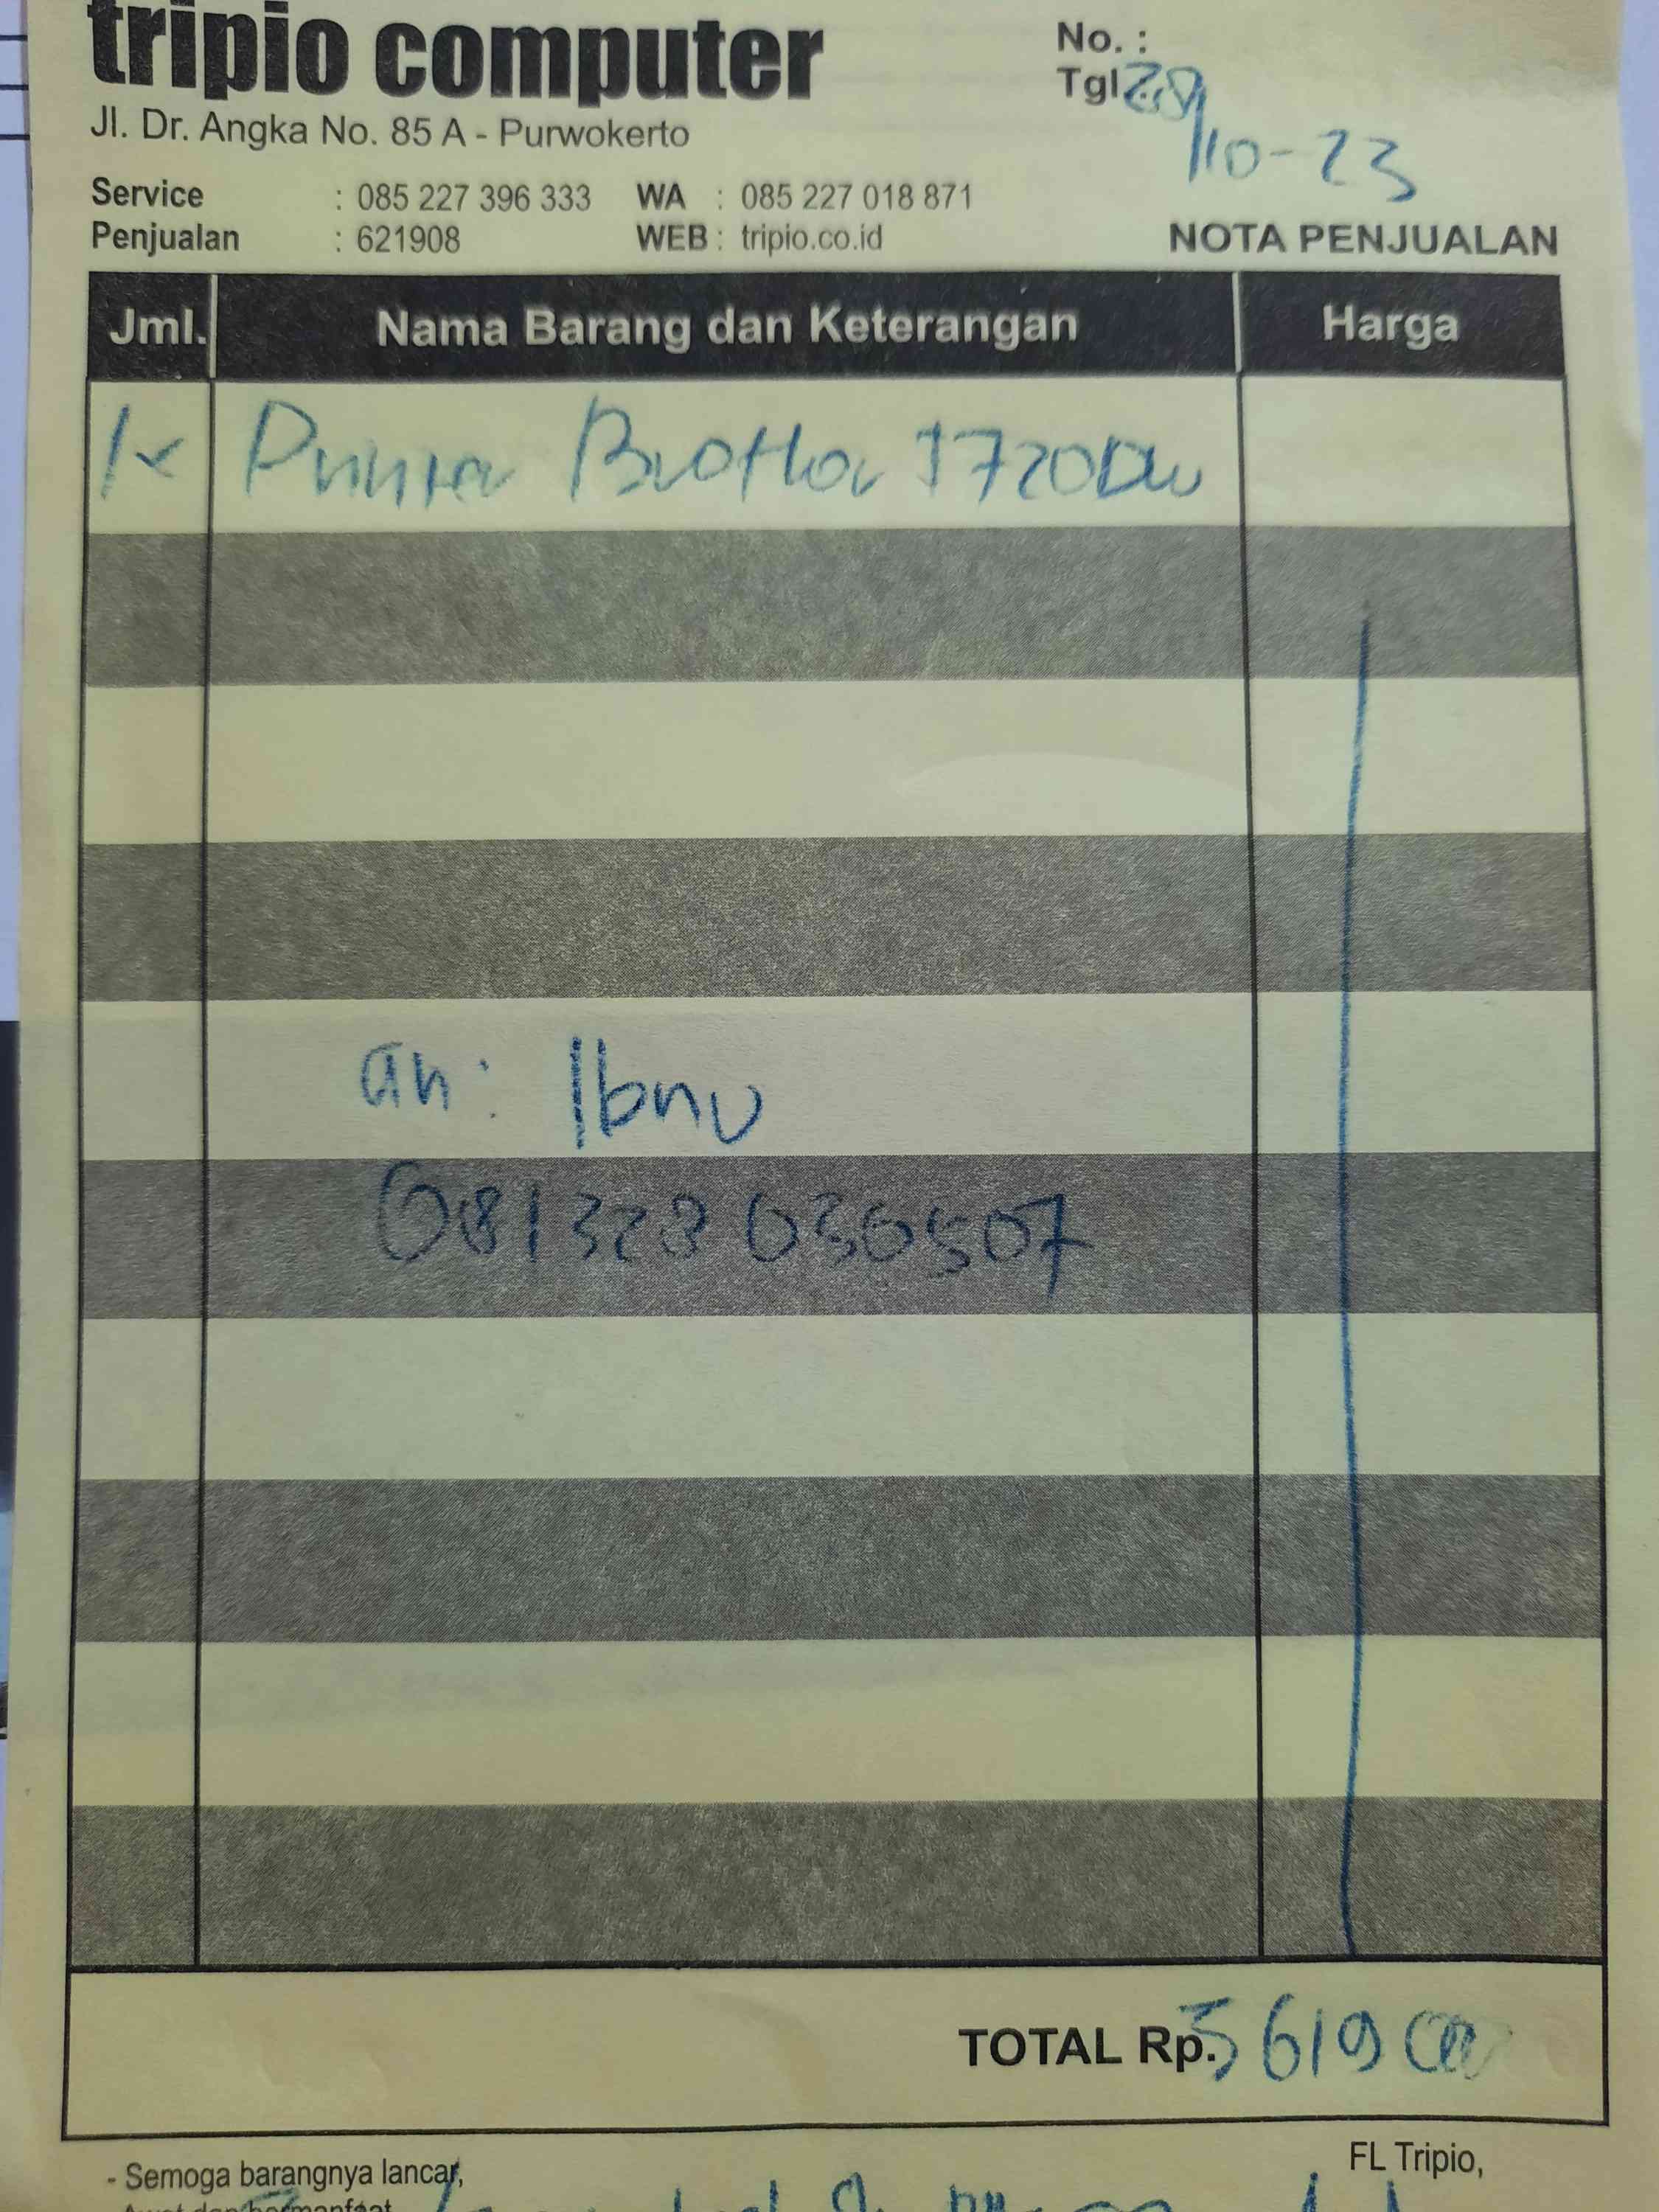 tripio computer
Jl. Dr. Angka No. 85 A - Purwokerto
No. :
Tgl.
10-23
Service : 085 227 396 333 WA : 085 227 018 871
Penjualan : 621908 WEB : tripio.co.id
NOTA PENJUALAN
Jml. Nama Barang dan Keterangan Harga
1x Printer Brother T720DW
an: Ibnu
TOTAL Rp.
FL Tripio,
- Semoga barangnya lancar,